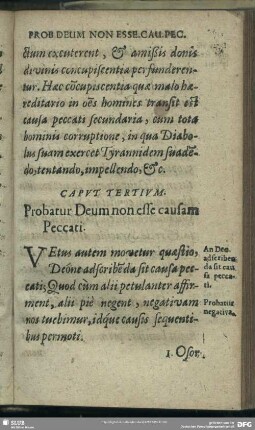 PROB. DEUM NON ESSE. CAU. PEC.
ctum excuterent, & amißis donis
divinis concupiscentia perfunderen-
tur. Hæc cõcupiscentia quæ malo hæ-
reditario in oẽs homines transit est
causa peccati secundaria, cum tota
hominis corruptione, in qua Diabo-
lus suam exercet Tyrannidem suadẽ-
do, tentando, impellendo, &c.
CAPVT TERTIVM.
Probatur Deum non esse causam
Peccati.
VEtus autem movetur quæstio,
Deóne adscribẽda sit causa pec-
cati; Quod cùm alii petulanter affir-
ment, alii piè negent, negativam
nos tuebimur, idque causis sequenti-
bus permoti.
An Deo
adscriben-
da sit cau-
sa pecca-
ti.
Probatur
negativa.
1. Osor.
SLUB
DFG